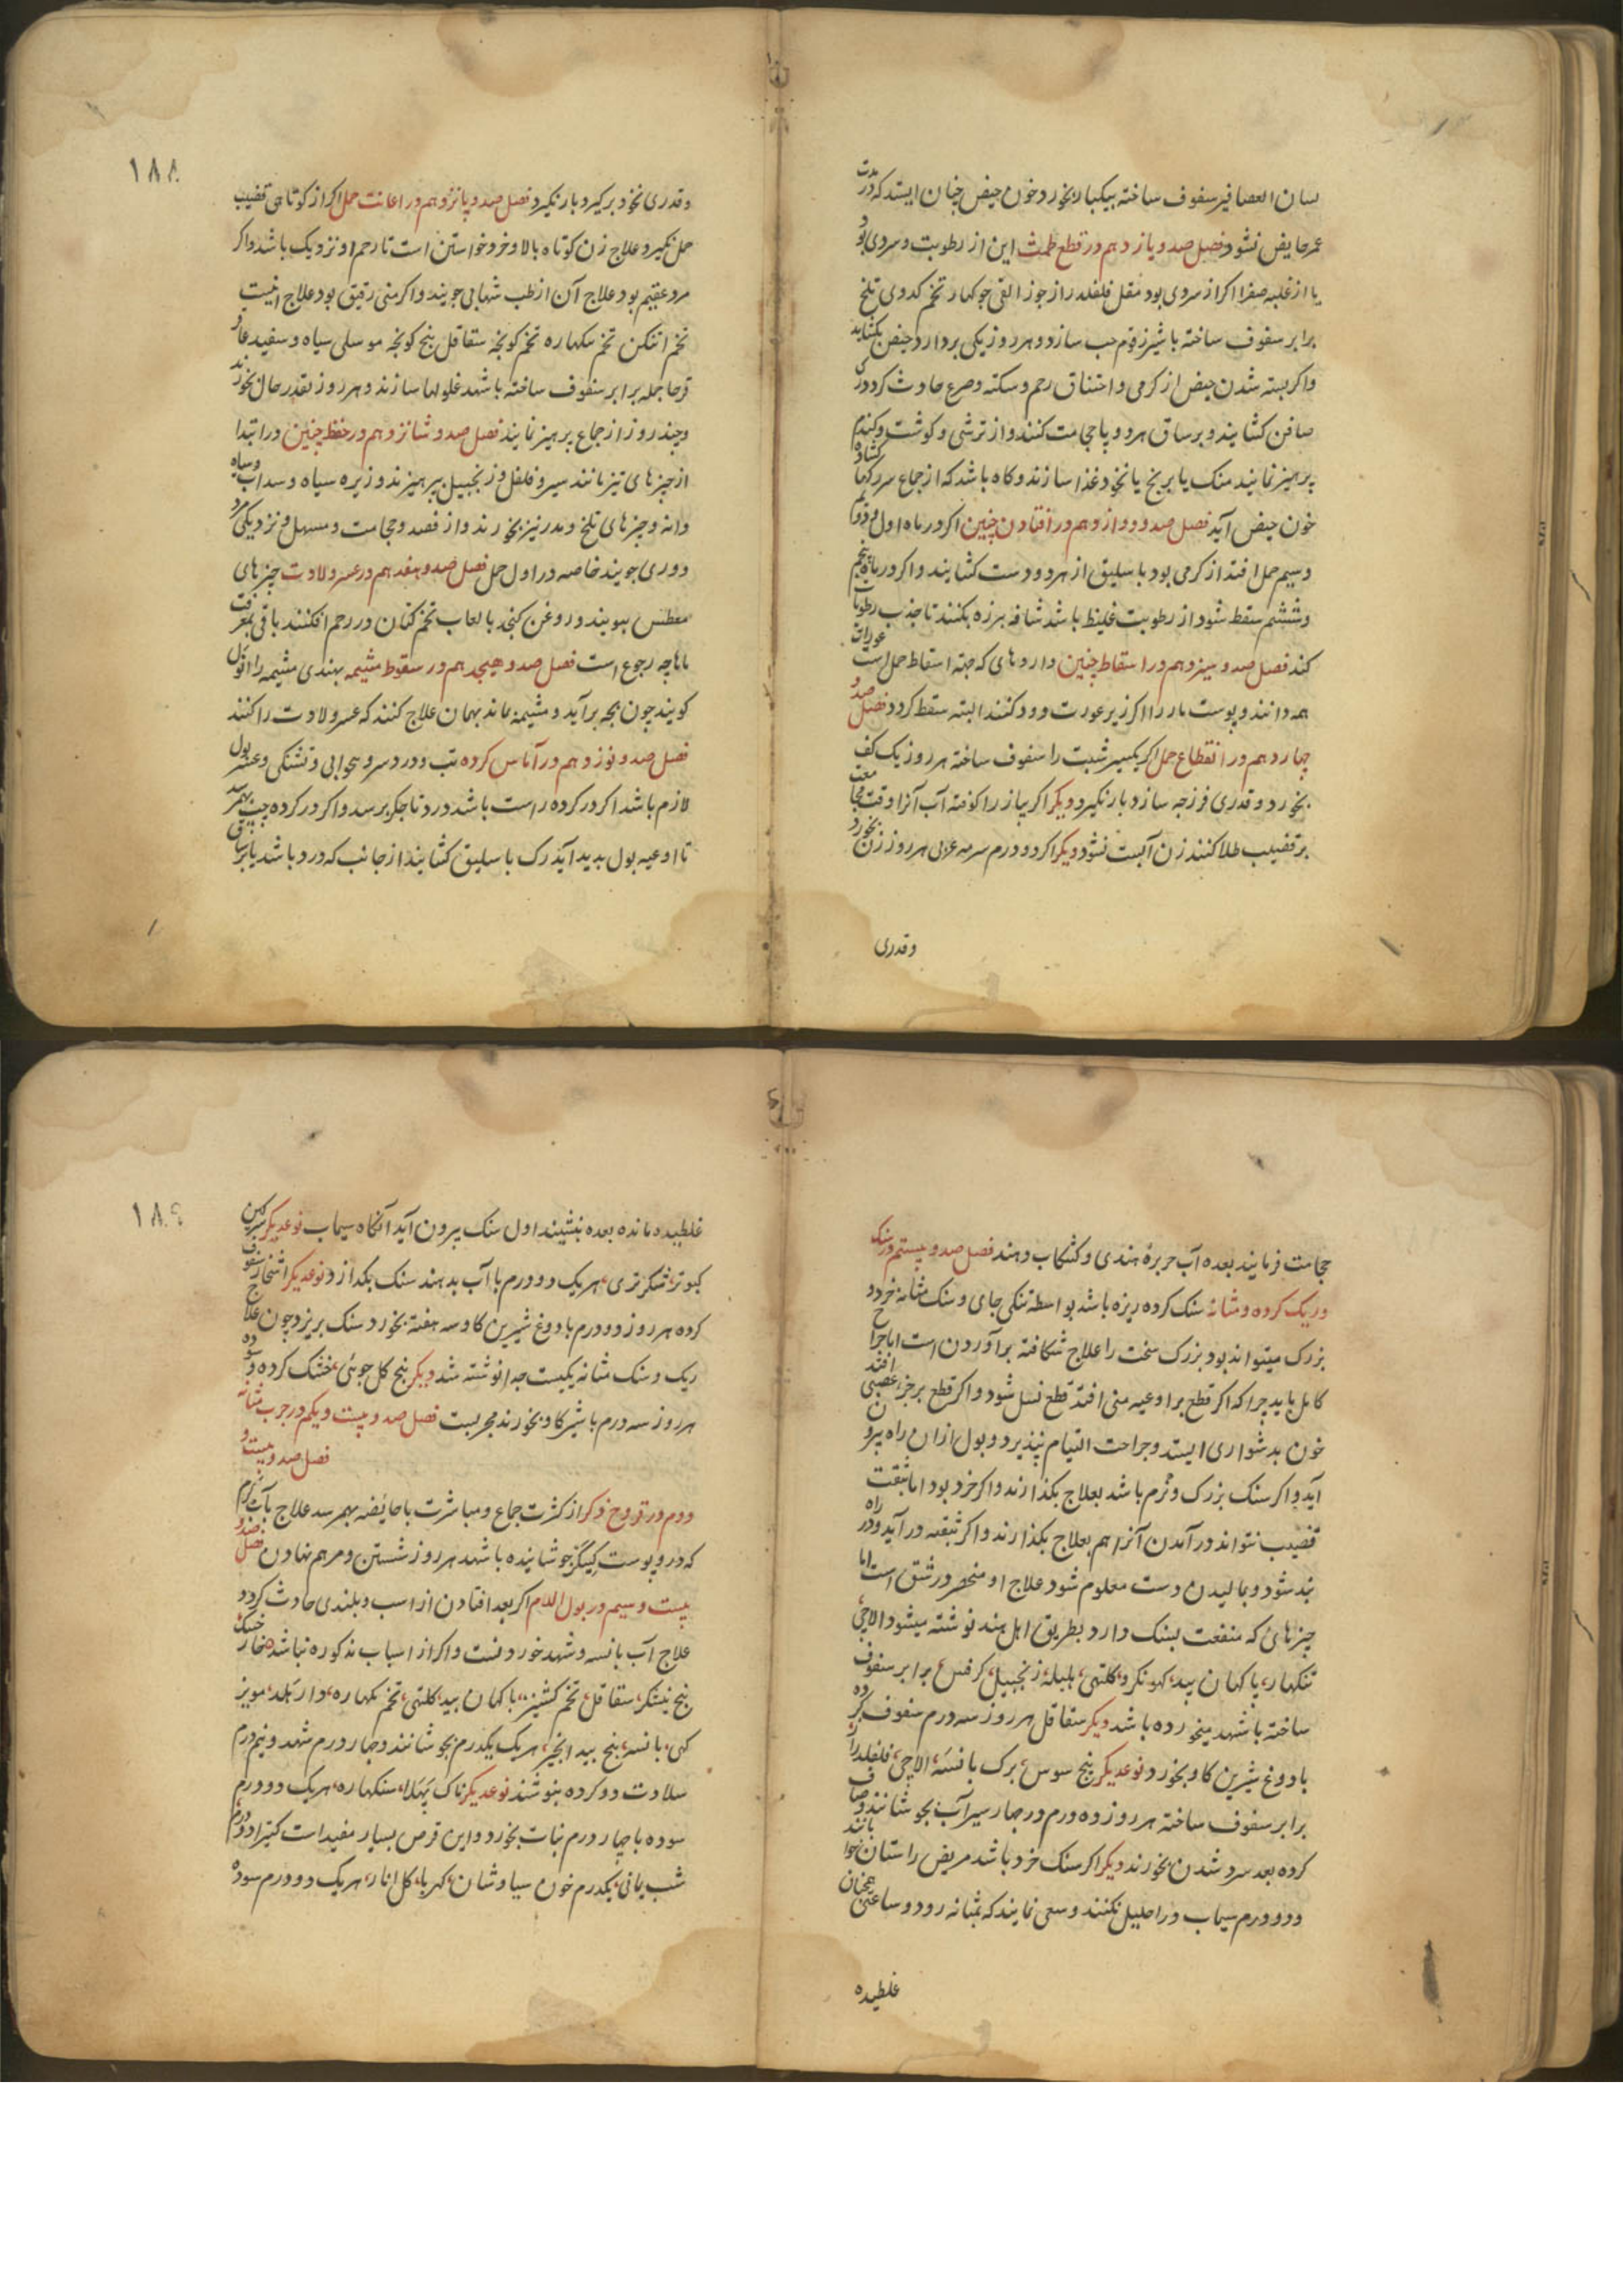 لسان العصافیر سفوف ساخته بیکبار بخورد خون حیض چنان ایستد که در مدت
عمر حایض نشود فصل صد و یازدهم در قطع طمث این از رطوبت و سردی بود
یا از غلبه صفرا اگر از سردی بود مقل فلفلدراز جوز القی جوکهار تخم کدوی تلخ
برابر سفوف ساخته با شیر زقوم حب سازد و هر روز یکی بردارد حیض بکشاید
واکر بسته شدن حیض از کرمی و اختناق رحم و سکته و صرع حادث کردد رک
صافن کشایند و بر ساق هر دو پا حجامت کنند و از ترشی و کوشت و کندم
پرهیز نمایند منک یا برنج یا نخود غذا سازند و کاه باشد که از جماع سر رکها کشاده
خون حیض آید فصل صد و دوازدهم در افتادن جنین اکر در ماه اول و دوم
و سیم حمل افتد از کرمی بود باسلیق از هر دو دست کشایند و اکر در ماه پنجم
و ششم سقط شود از رطوبت غلیظ باشد شافه هرزه بکنند تا جذب رطوبات
کند فصل صد و سیزدهم در اسقاط جنین داروهای که جهة اسقاط حمل است عورات
همه دانند و پوست مار را اکر زیر عورت دود کنند البته سقط کردد فصل صد و
چهاردهم در انقطاع حمل اکر یکسیر شبت را سفوف ساخته هر روز یک کف
بخورد و قدری فرزجه سازد بار نکیرد دیکر اکر پیاز را کوفته آب آنرا وقت مجامعت
بر قضیب طلا کنند زن آبست نشود دیکر اکر دو درم سرمه عربی هر روز زن بخورد
وقدری
۱۸۸
وقدری نخود برکیرد بار نکیرد فصل صد و پانزدهم در اعانت حمل اکر از کوتاهی قضیب
حمل نکیرد علاج زن کوتاه بالا و خرد خواستن است تا رحم او نزدیک باشد و اکر
مرد عقیم بود علاج آن از طب شهابی جویند و اکر منی رقیق بود علاج اینست
تخم اتنکن تخم سکهاره تخم کونچه ستقاقل بنج کونچه موسلی سیاه و سفید عاقر
قرحا جمله برابر سفوف ساخته باشهد غلولها سازند و هر روز بقدر حال بخورند
و چند روز از جماع پرهیز نمایند فصل صد و شانزدهم در حفظ جنین در ابتدا
از چیزهای تیز مانند سیر و فلفل و زنجبیل بپرهیزند و زیره سیاه و سداب و سیاه
دانه و چیزهای تلخ و مدر نیز نخورند و از فصد و حجامت و مسهل و نزدیکی مرد
دوری جویند خاصه در اول حمل فصل صد و هفدهم در عسر ولادت چیزهای
معطس ببویند و روغن کنجد بالعاب تخم کتان در رحم افکنند باقی بمعرفت
ماماچه رجوع است فصل صد و هیجدهم در سقوط مشیمه بهندی مشیمه را انول
کویند چون بچه برآید و مشیمه ماند بهمان علاج کنند که عسر ولادت را کنند
فصل صد و نوزدهم در آماس کرده تب و درد سر و بیخوابی و تشنکی و عسر بول
لازم باشد اکر در کرده راست باشد درد تا جکر برسد و اکر در کرده چپ بهمرسد
تا اوعیه بول پدید آید رک باسلیق کشایند از جانب که درد باشد یا بر ساق
حجامت فرمایند بعده آب حریرهٔ هندی و کشکاب دهند فصل صد و بیستم در سنک
و ریک کرده و مثانه سنک کرده ریزه باشد بواسطه تنکی جای و سنک مثانه خرد و
بزرک میتواند بود بزرک سخت را علاج شکافته برآوردن است اما جراح
کامل باید چرا که اکر قطع بر اوعیه منی افتد قطع نسل شود و اکر قطع بر جزء عصبی افتد
خون بدشواری ایستد و جراحت التیام نپذیرد و بول ازان راه بیرون
آید و اکر سنک بزرک و نرم باشد بعلاج بکدازند و اکر خرد بود اما بثقبت
قضیب نتواند درآمدن آنرا هم بعلاج بکدازند و اکر بثقبه درآید و در راه
بند شود و بمالیدن دست معلوم شود علاج او منحصر در شق است اما
چیزهائ که منفعت بسنک دارد بطریق اهل هند نوشته میشود الاچی
تنکهار پاکهان بید کهونکرو کلتهی هلیله زنجبیل کرفس برابر سفوف
ساخته باشهد میخورده باشد دیکر ستقاقل هر روز سه درم سفوف کرده
بادوغ شیرین کاو بخورد نوعدیکر بنج سوس برک بانسه الاچی فلفلدراز
برابر سفوف ساخته هر روز ده درم در چهار سیر آب بجوشانند و صاف
کرده بعد سرد شدن بخورند دیکر اکر سنک خرد باشد مریض راستان خوابانند
و دو درم سیماب در احلیل بکنند و سعی نمایند که بمثانه رود و ساعتی همچنان
غلطیده
۱۸۹
غلطیده مانده بعده بنشیند اول سنک بیرون آید آنکاه سیماب نوعدیکر سرکین
کبوتر شکرتری هریک دو درم باآب بدهند سنک بکدازد نوعدیکر اشخار سفوف
کرده هر روز دو درم بادوغ شیرین کاو سه هفته بخورد سنک بریزد چون علاج
ریک و سنک مثانه یکیست جدا نوشته نشد دیکر بنج کل جوئی خشک کرده و سوده
هر روز سه درم باشیر کاو بخورند مجربست فصل صد و بیست و یکم در جرب مثانه
فصل صد و بیست و
دوم در قروح ذکر از کثرت جماع و مباشرت باحائضه بهمرسد علاج بآب کرم
که درو پوست کیکر جوشانیده باشد هر روز شستن و مرهم نهادن فصل صد و
بیست و سیم در بول الدم اکر بعد افتادن از اسب و بلندی حادث کردد
علاج آب بانسه و شهد خوردنست و اکر از اسباب مذکوره نباشد خار خسک
بنج نیشکر ستقاقل تخم کشنیز پاکهان بید کلتهی تخم نکهاره دار بلد مویز
کهی بانسه بنج بید انجیر هریک یکدرم بجوشانند و چهار درم شهد و نیم درم
سلاجت دو کرده بنوشند نوعدیکر ناک پهلا سنکهاره هریک دو درم
سوده باچهار درم نبات بخورد و این قرص بسیار مفید است کتیرا دو درم
شب یمانی یکدرم خون سیاوشان کهربا کل انار هریک دو درم سوده